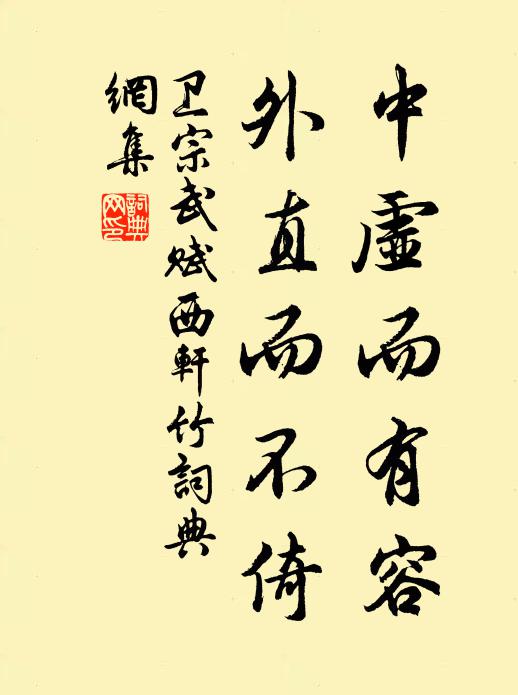 中虛而有容
外直而不倚
卫宗武赋西軒竹詞典
網集
詞典
网印